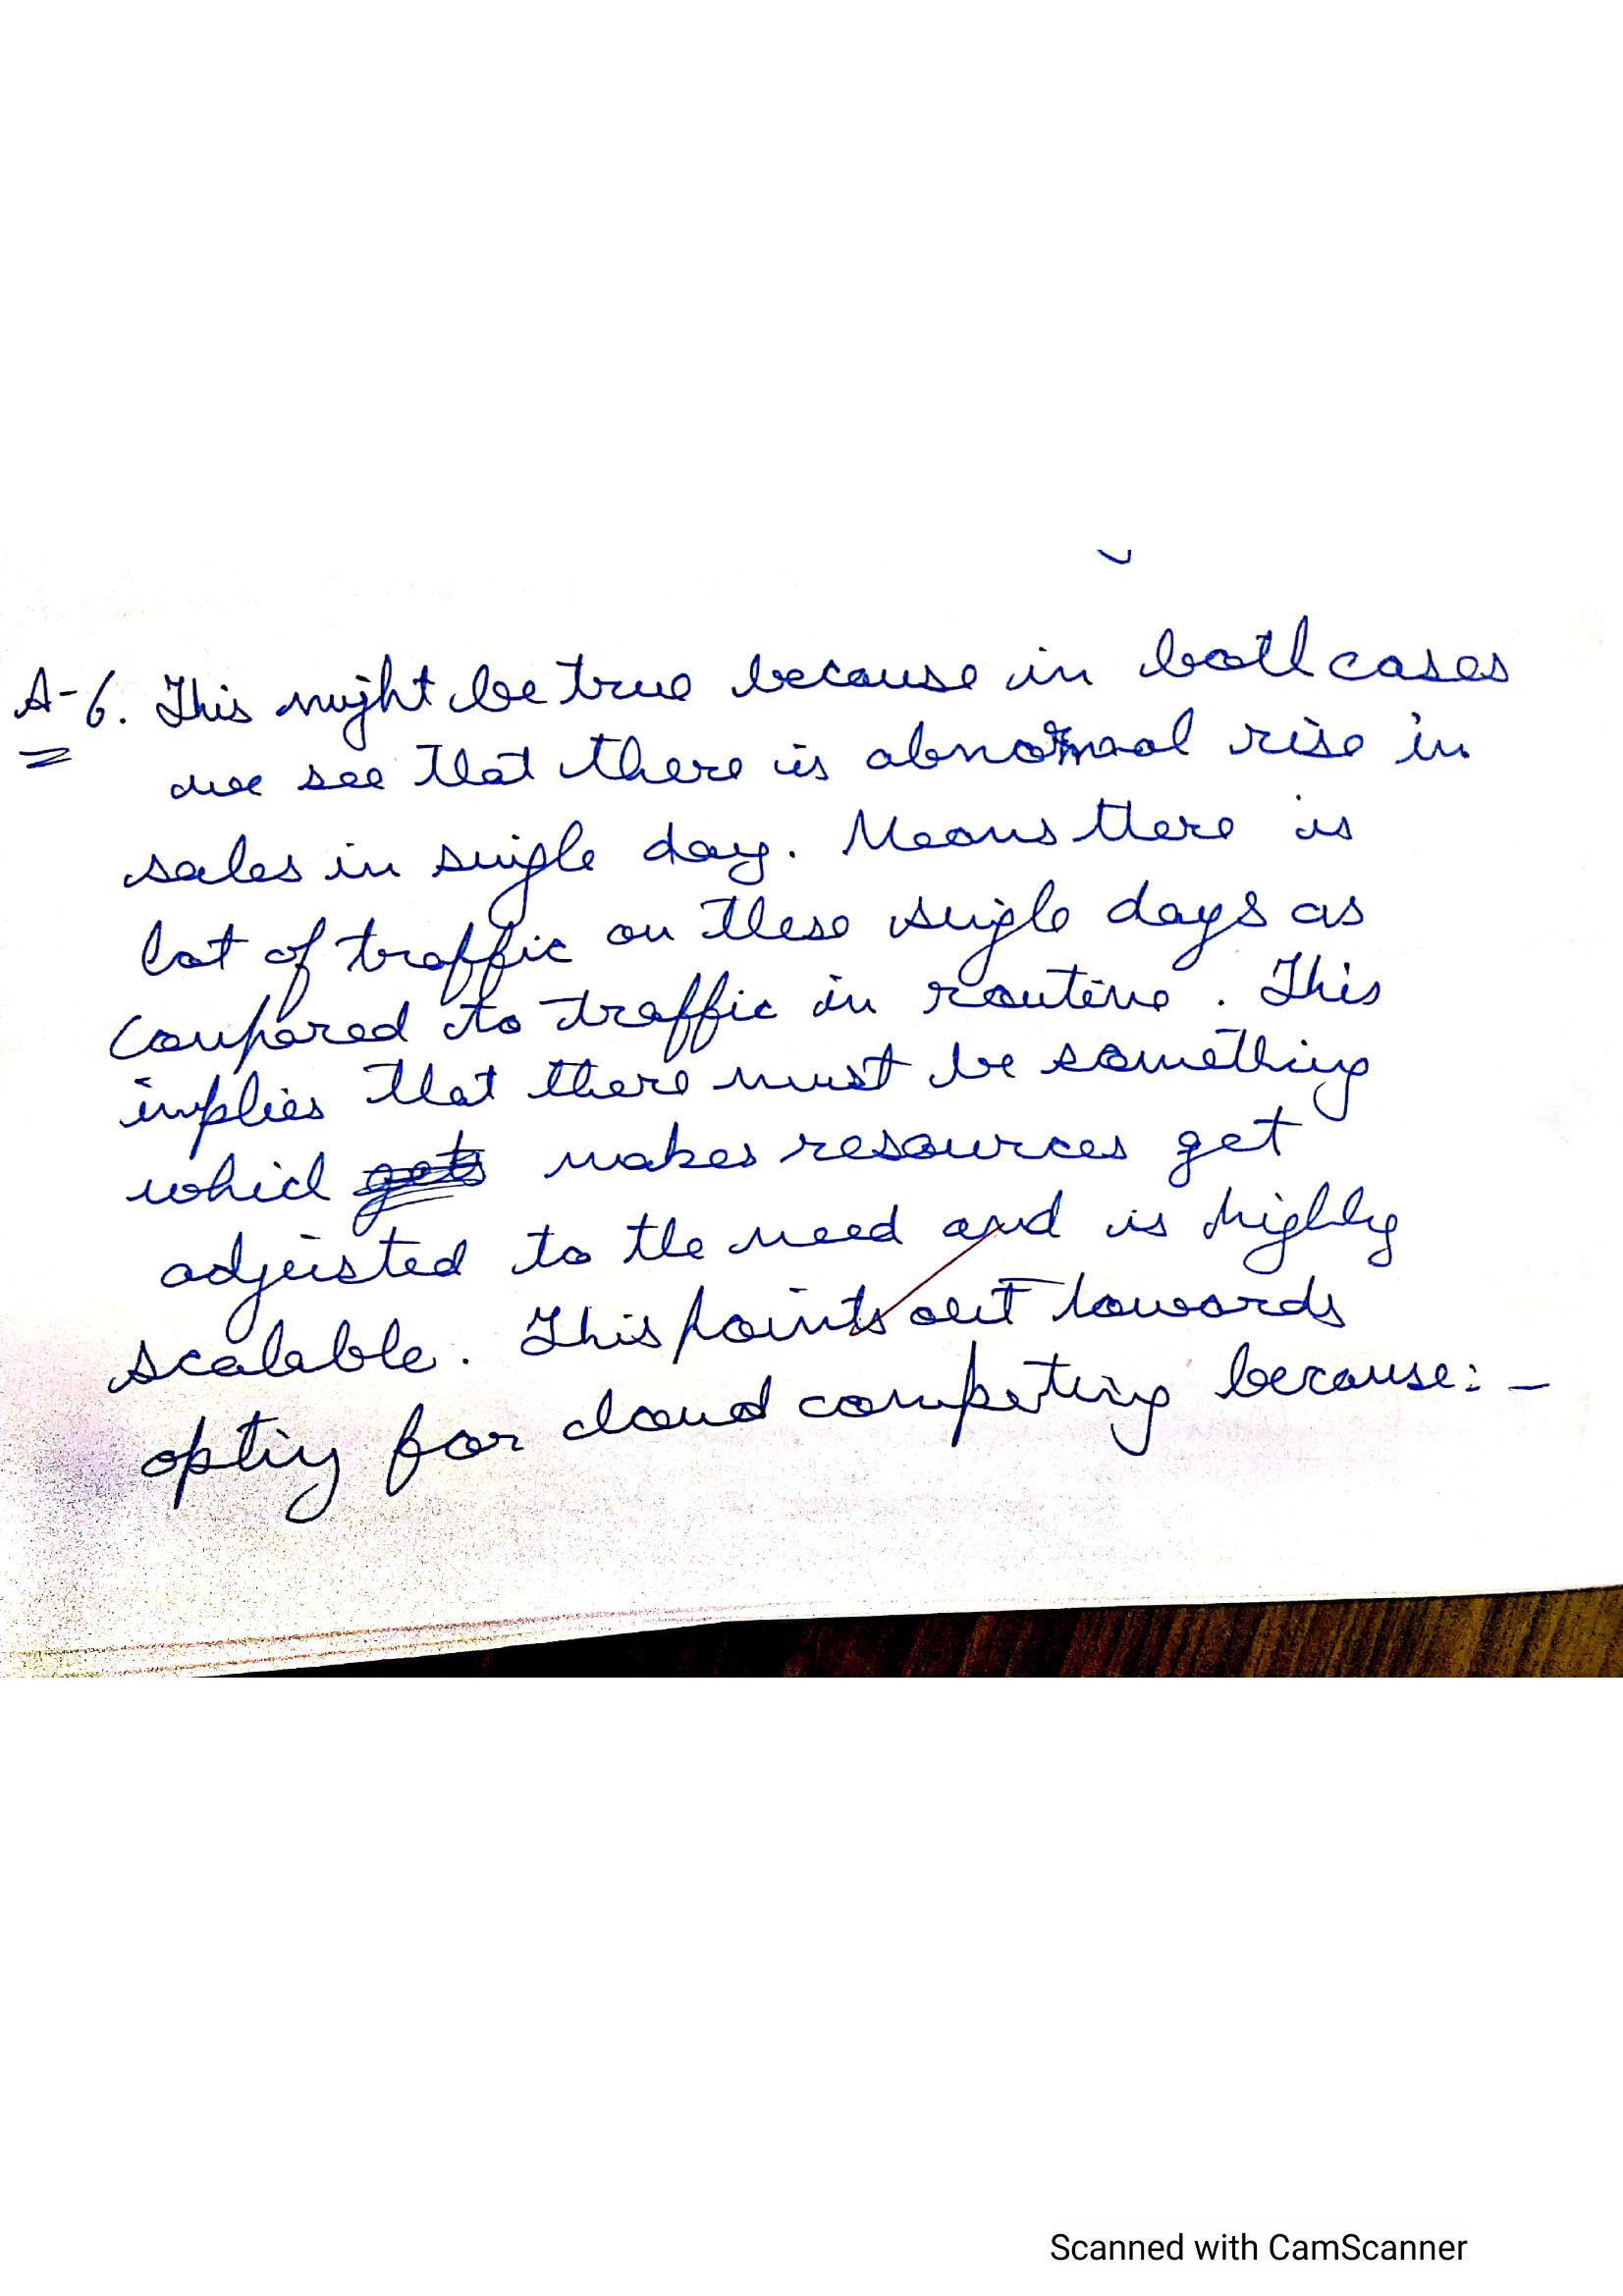 A-6. This might be true because in both cases
we see that there is abnormal rise in
sales in single day. Means there is
lot of traffic on these single days as
compared to traffic in routine. This
implies that there must be something
which gets makes resources get
adjusted to the need and is highly
scalable. This points out towards
opting for cloud computing because:-
Scanned with CamScanner